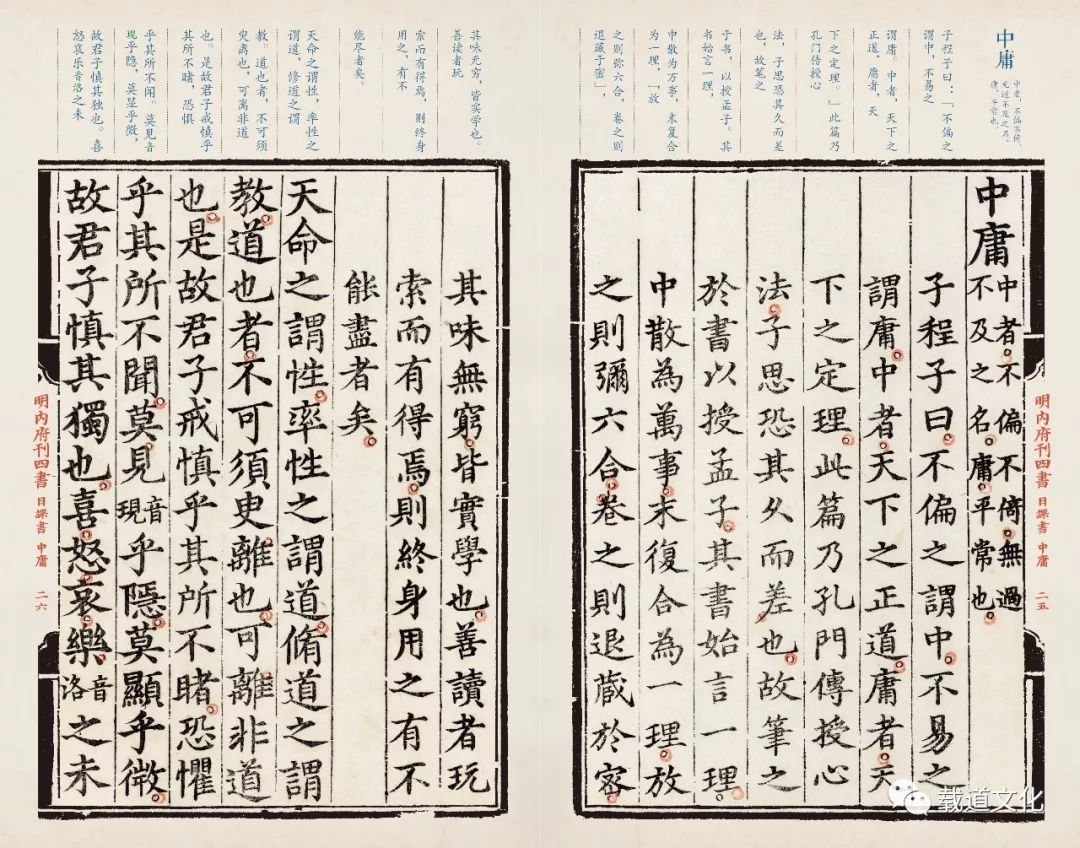 中庸
中者，不偏不倚，
无过不及之名。
庸，平常也。
子程子曰：「不偏之
谓中，不易之
谓庸。中者，天下之
正道，庸者，天
下之定理。」此篇乃
孔门传授心
法，子思恐其久而差
也，故笔之
于书，以授孟子。其
书始言一理，
中散为万事，末复合
为一理，「放
之则弥六合，卷之则
退藏于密」，
中庸
中者不偏不倚無過
不及之名庸平常也
子程子曰不偏之謂中不易之
謂庸中者天下之正道庸者天
下之定理此篇乃孔門傳授心
法子思恐其久而差也故筆之
於書以授孟子其書始言一理
中散為萬事末復合為一理放
之則彌六合卷之則退藏於密
明内府刊四書 日課書 中庸 二五
其味无穷，皆实学也。
善读者玩
索而有得焉，则终身
用之，有不
能尽者矣。
天命之谓性，率性之
谓道，修道之谓
教。道也者，不可须
臾离也，可离非道
也。是故君子戒慎乎
其所不睹，恐惧
乎其所不闻。莫见音
现乎隐，莫显乎微，
故君子慎其独也。喜
怒哀乐音洛之未
其味無窮皆實學也善讀者玩
索而有得焉則終身用之有不
能盡者矣
天命之謂性率性之謂道脩道之謂
教道也者不可須臾離也可離非道
也是故君子戒慎乎其所不睹恐懼
乎其所不聞莫見音現乎隱莫顯乎微
故君子慎其獨也喜怒哀樂音洛之未
明内府刊四書 日課書 中庸 二六
载道文化